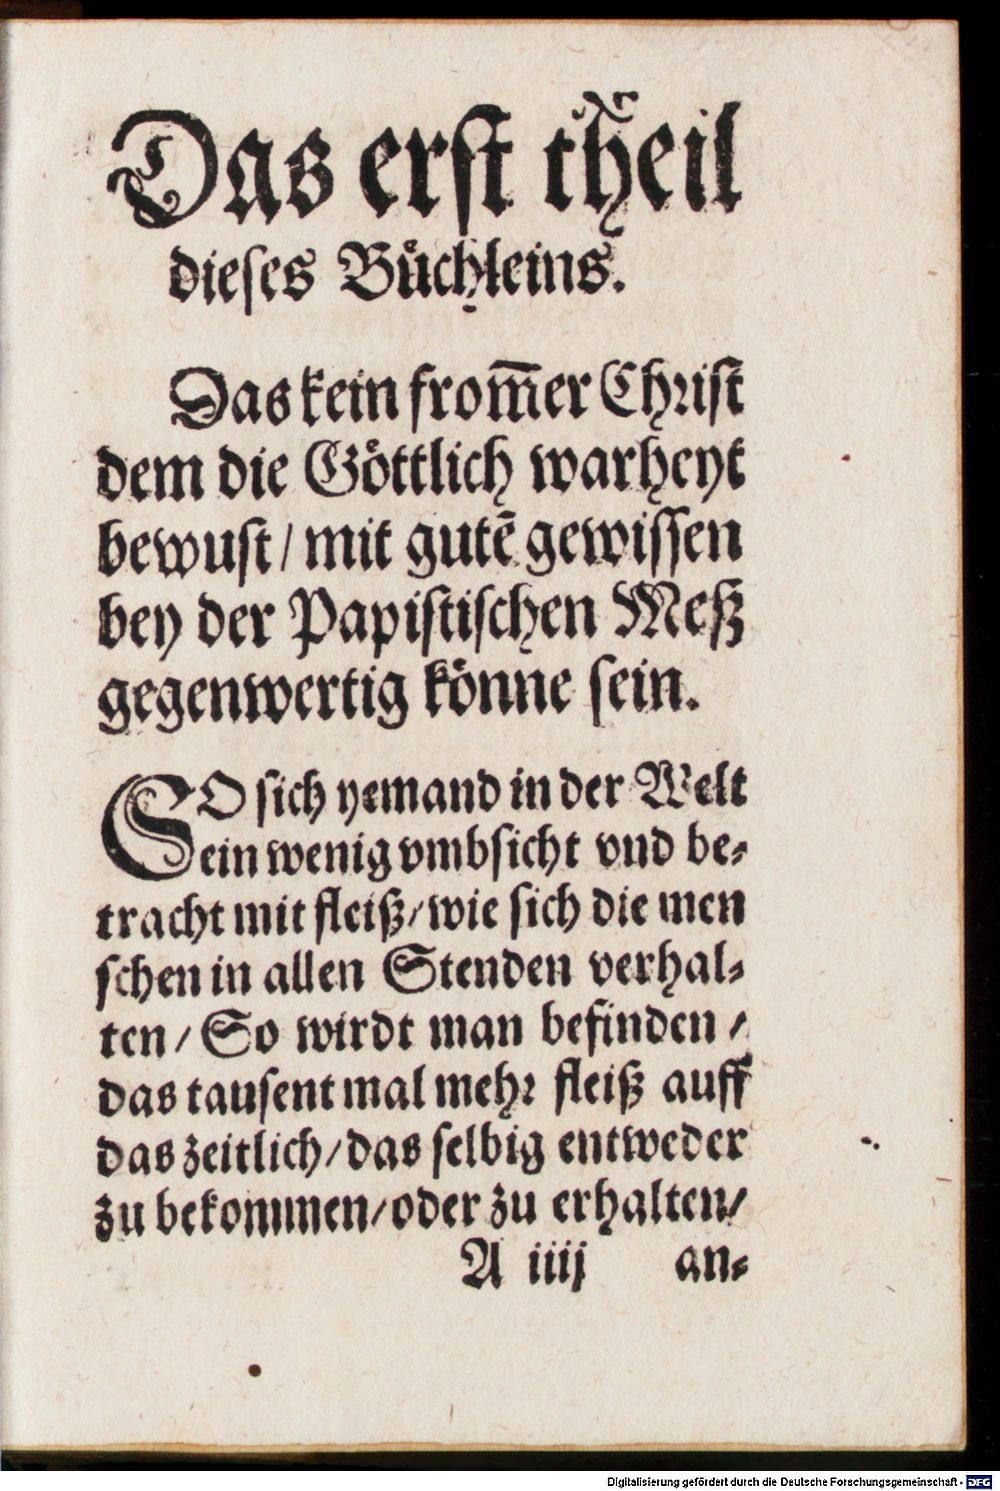 Das erſt theil
dieſes Buͤchleins.
Das kein from̃er Chꝛiſt
dem die Goͤttlich warheyt
bewust / mit gutẽ gewiſſen
bey der Papiſtiſchen Meß
gegenwertig koͤnne ſein.
SO ſich yemand in der Welt
ein wenig vmbſicht vnd be⸗
tracht mit fleiß / wie ſich die men
ſchen in allen Stenden verhal⸗
ten / So wirdt man befinden /
das tauſent mal mehꝛ fleiß auff
das zeitlich / das ſelbig entweder
zu bekommen / oder zu erhalten /
A iiij an⸗
Digitalisierung gefördert durch die Deutsche Forschungsgemeinschaft - DFG